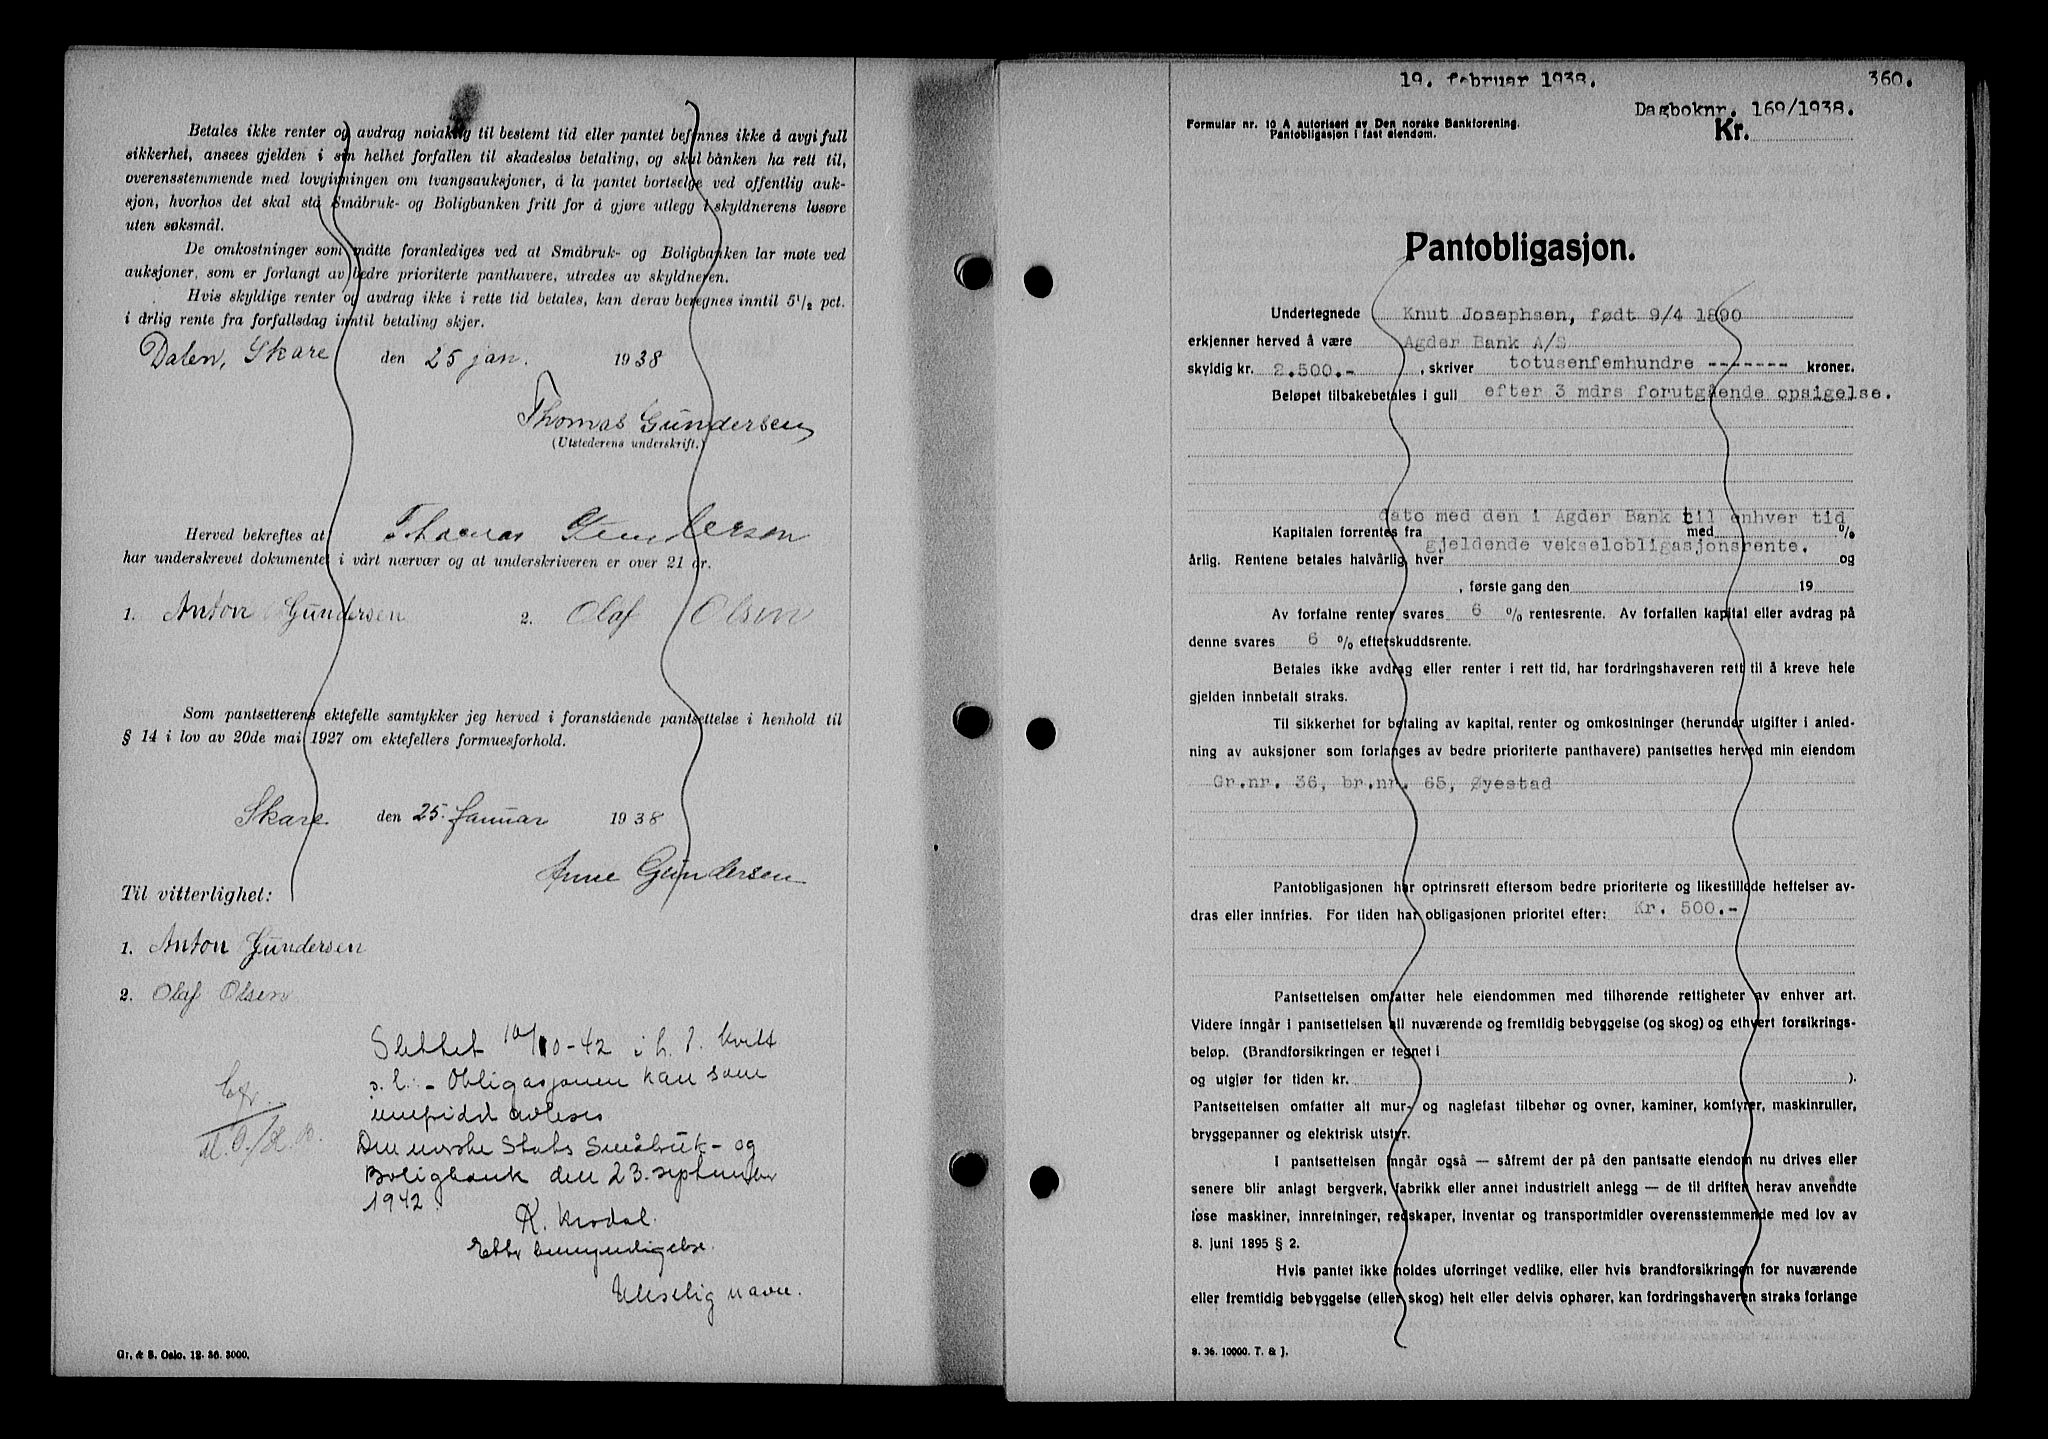 Betales ikke renter og avdrag nøiaktig til bestemt tid eller pantet befinnes ikke å avgi full
sikkerhet, ansees gjelden i sin helhet forfallen til skadesløs betaling, og skal banken ha rett til,
overensstemmende med lovgivningen om tvangsauksjoner, å la pantet bortselge ved offentlig auk-
sjon, hvorhos det skal stå Småbruk- og Boligbanken fritt for å gjøre utlegg i skyldnerens løsøre
uten søksmål.
De omkostninger som måtte foranlediges ved at Småbruk- og Boligbanken lar møte ved
auksjoner, som er forlangt av bedre prioriterte panthavere, utredes av skyldneren.
Hvis skyldige renter og avdrag ikke i rette tid betales, kan derav beregnes inntil 5 1/2 pct.
i årlig rente fra forfallsdag inntil betaling skjer.
Dalen, Skare den 25 jan. 1938
Thomas Gundersen
(Utstederens underskrift.)
Herved bekreftes at Thomas Gundersen
har underskrevet dokumentet i vårt nærvær og at underskriveren er over 21 år.
1. Anton Gundersen 2. Olaf Olsen
Som pantsetterens ektefelle samtykker jeg herved i foranstående pantsettelse i henhold til
§ 14 i lov av 20de mai 1927 om ektefellers formuesforhold.
Skare den 25. Januar 1938
Anne Gundersen
Til vitterlighet:
1. Anton Gundersen
2. Olaf Olsen
Slettet 10/10-42 i h. t. kvitt
s.l. - Obligasjonen kan som
innfridd avleses
Den norske Stats Småbruk- og
Boligbank den 23. september
1942.
K. Krodal.
Efter bemyndigelse.
Uleselig navn.
Gr. & S. Oslo. 12. 36. 3000.
19. februar 1938. 360.
Dagboknr. 169/1938.
Formular nr. 10 A autorisert av Den norske Bankforening.
Pantobligasjon i fast eiendom.
Kr.
Pantobligasjon.
Undertegnede Knut Josephsen, født 9/4 1890
erkjenner herved å være Agder Bank A/S
skyldig kr. 2.500.- , skriver totusenfemhundre ------- kroner.
Beløpet tilbakebetales i gull efter 3 mdrs forutgående opsigelse.
dato med den i Agder Bank til enhver tid
Kapitalen forrentes fra med %
gjeldende vekselobligasjonsrente.
årlig. Rentene betales halvårlig hver og
, første gang den 19
Av forfalne renter svares 6 % rentesrente. Av forfallen kapital eller avdrag på
denne svares 6 % efterskuddsrente.
Betales ikke avdrag eller renter i rett tid, har fordringshaveren rett til å kreve hele
gjelden innbetalt straks.
Til sikkerhet for betaling av kapital, renter og omkostninger (herunder utgifter i anled-
ning av auksjoner som forlanges av bedre prioriterte panthavere) pantsettes herved min eiendom
Gr.nr. 36, br.nr. 65, Øyestad
Pantobligasjonen har optrinsrett eftersom bedre prioriterte og likestillede heftelser av-
dras eller innfries. For tiden har obligasjonen prioritet efter: Kr. 500.-
Pantsettelsen omfatter hele eiendommen med tilhørende rettigheter av enhver art.
Videre inngår i pantsettelsen all nuværende og fremtidig bebyggelse (og skog) og ethvert forsikrings-
beløp. (Brandforsikringen er tegnet i
og utgjør for tiden kr. ).
Pantsettelsen omfatter alt mur- og naglefast tilbehør og ovner, kaminer, komfyrer, maskinruller,
bryggepanner og elektrisk utstyr.
I pantsettelsen inngår også — såfremt der på den pantsatte eiendom nu drives eller
senere blir anlagt bergverk, fabrikk eller annet industrielt anlegg — de til driften herav anvendte
løse maskiner, innretninger, redskaper, inventar og transportmidler overensstemmende med lov av
8. juni 1895 § 2.
Hvis pantet ikke holdes uforringet vedlike, eller hvis brandforsikringen for nuværende
eller fremtidig bebyggelse (eller skog) helt eller delvis ophører, kan fordringshaveren straks forlange
9. 36. 10000. T. & J.